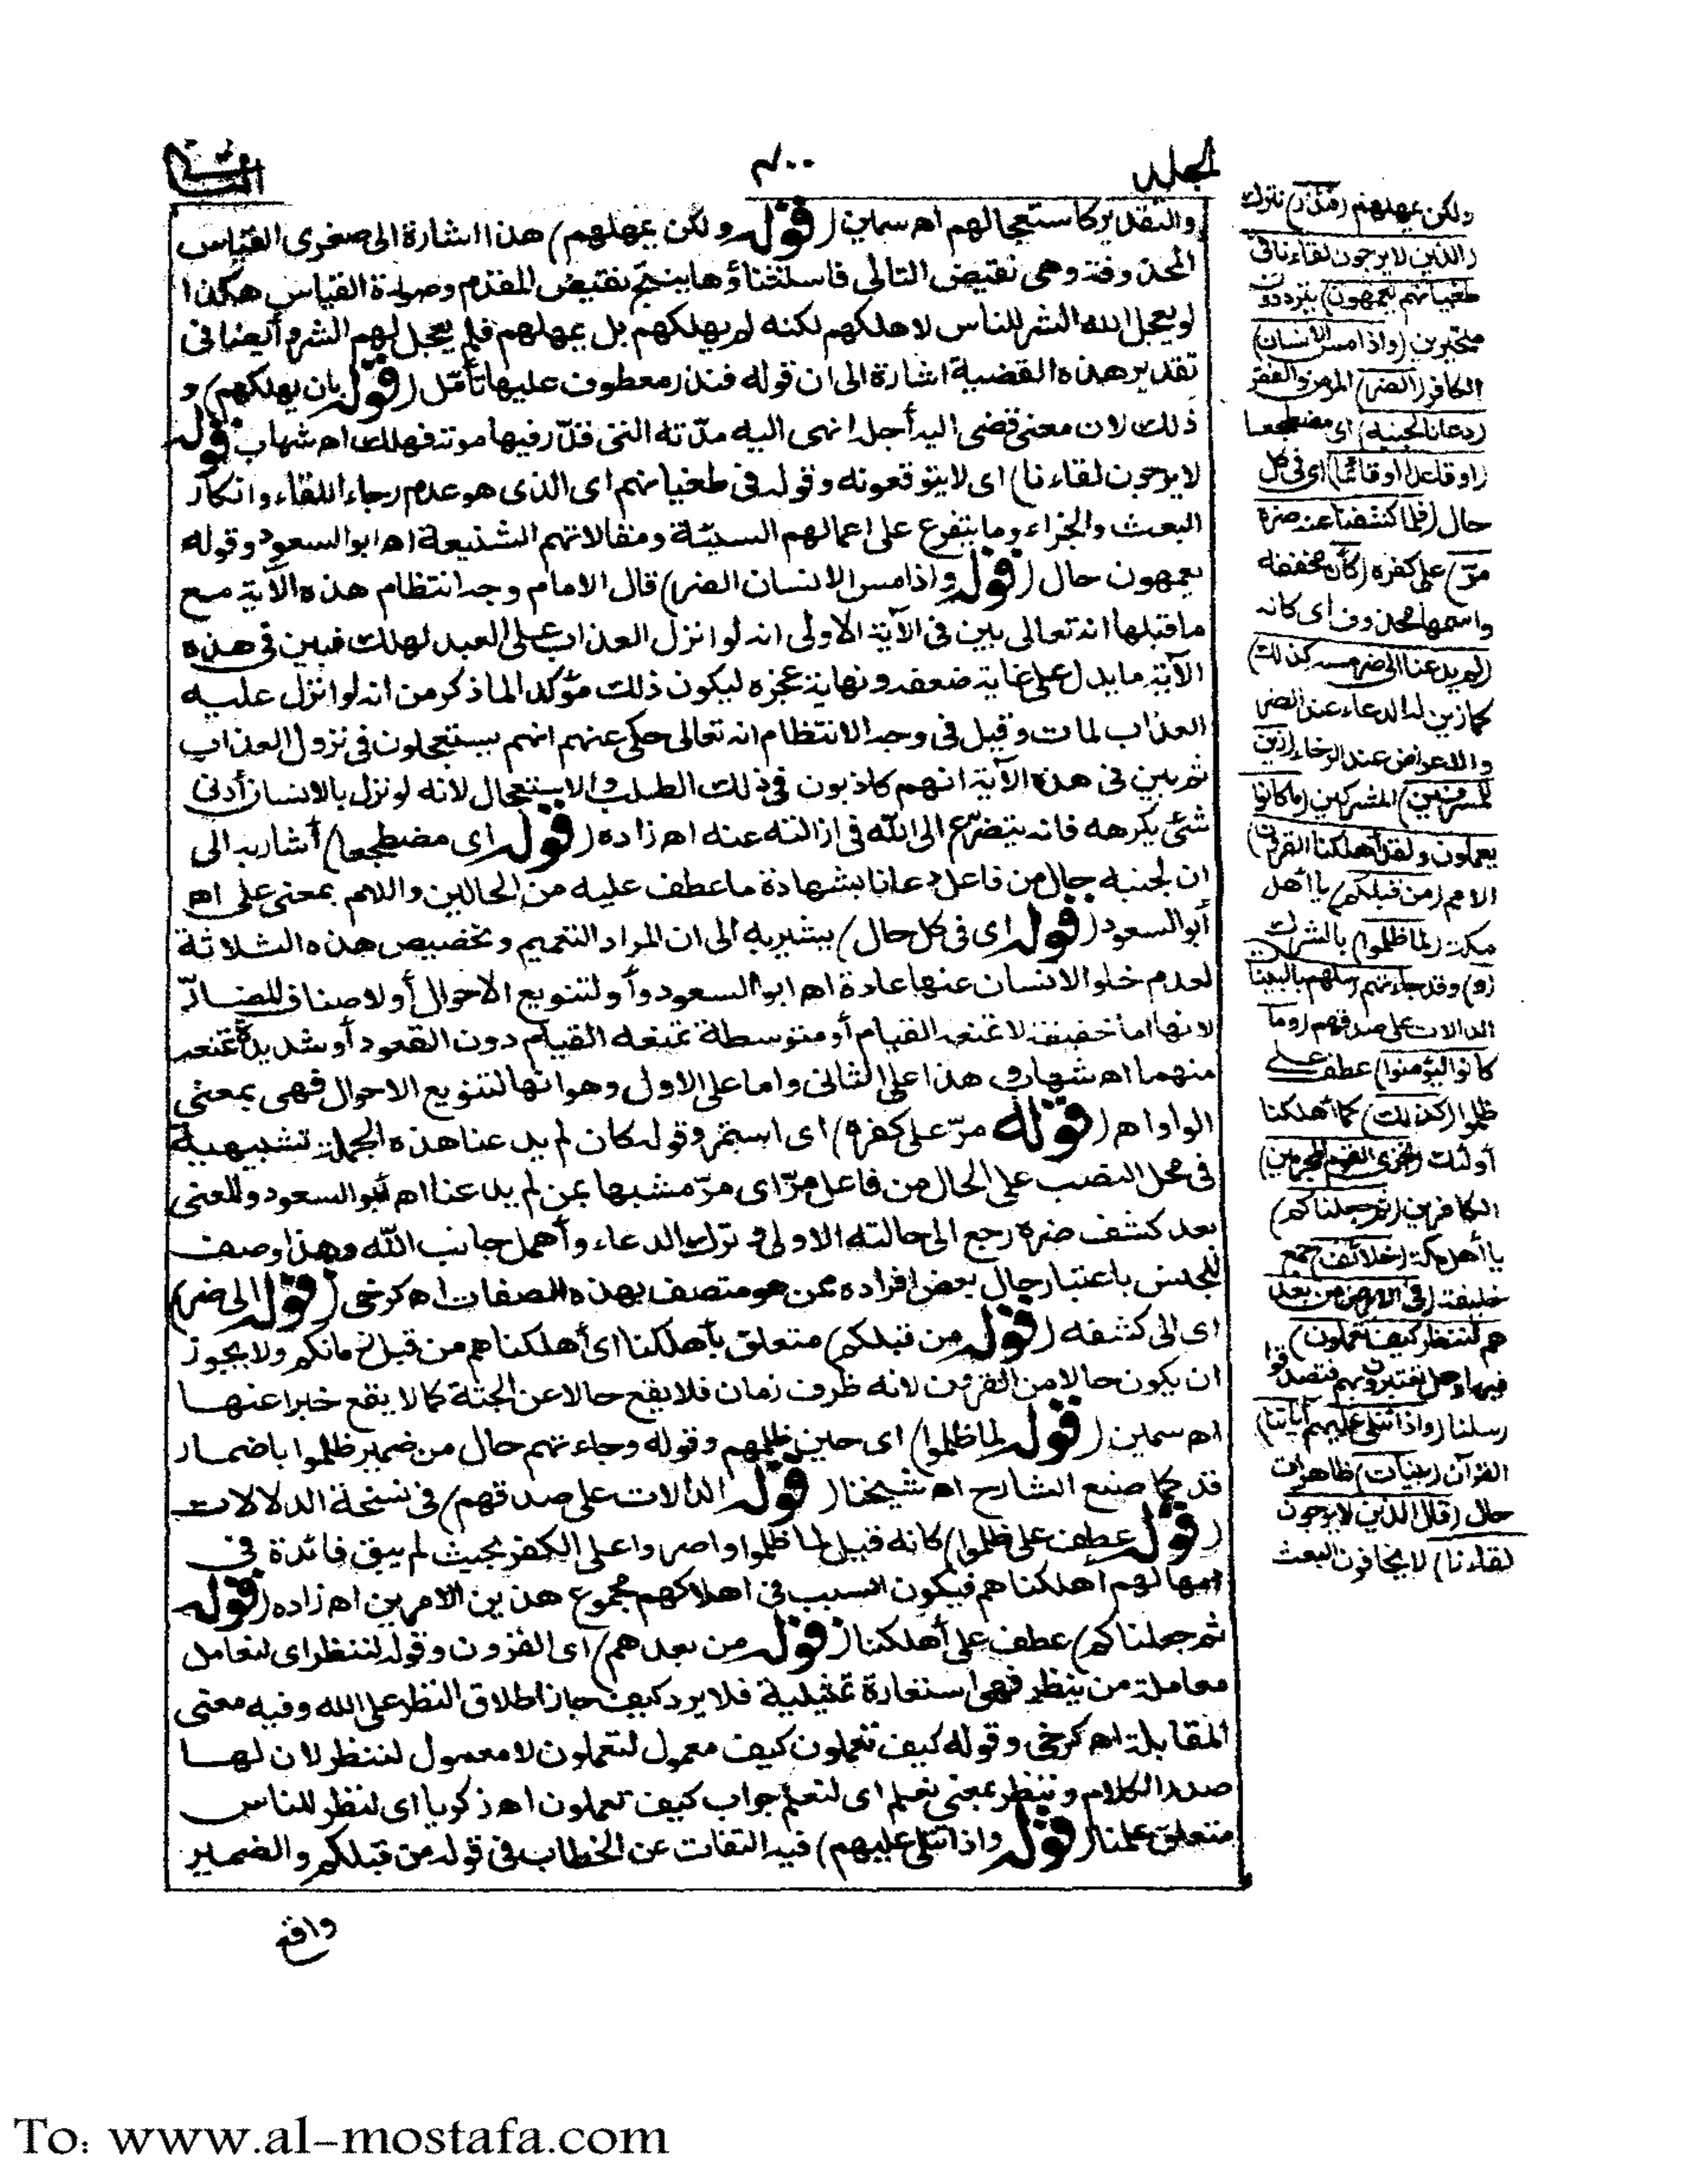 المجلد
٤٠٠
الثاني
والتقدير كاستعجالهم اه سمين (قوله ولكن يمهلهم) هذا اشارة الى صغرى القياس
المحذوفة وهي نقيض التالي فاستثناؤها ينتج نقيض المقدم وصورة القياس هكذا
لو يعجل الله الشر للناس لاهلكهم لكنه لم يهلكهم بل يمهلهم فلم يعجل لهم الشر وأيضا في
تقدير هذه القضية اشارة الى ان قوله فنذر معطوف عليها تأمل (قوله بان يهلكهم) و
ذلك لان معنى قضى اليه أجله انهى اليه مدته التي قدر فيها موته فهلك اه شهاب (قوله
لا يرجون لقاءنا) اى لا يتوقعونه وقوله في طغيانهم اى الذى هو عدم رجاء اللقاء وانكار
البعث والجزاء وما يتفرع على اعمالهم السيئة ومقالاتهم الشنيعة اه ابو السعود وقوله
يعمهون حال (قوله واذا مس الانسان الضر) قال الامام وجه انتظام هذه الآية مع
ما قبلها انه تعالى بين في الآية الاولى انه لو انزل العذاب على العبد لهلك فبين في هذه
الآية ما يدل على غاية ضعفه ونهاية عجزه ليكون ذلك مؤكدا لما ذكر من انه لو انزل عليه
العذاب لمات وقيل في وجه الانتظام انه تعالى حكى عنهم انهم يستعجلون في نزول العذاب
ثم بين في هذه الآية انهم كاذبون في ذلك الطلب والاستعجال لانه لو نزل بالانسان أدنى
شئ يكرهه فانه يتضرع الى الله في ازالته عنه اه زاده (قوله اى مضطجعا) أشار به الى
ان لجنبه حال من فاعل دعانا بشهادة ما عطف عليه من الحالين واللام بمعنى على اه
أبو السعود (قوله اى في كل حال) يشير به الى ان المراد التعميم وتخصيص هذه الثلاثة
لعدم خلو الانسان عنها عادة اه ابو السعود وأو لتنويع الاحوال أو لاصناف المضار
لانها اما خفيفة لا تمنعه القيام أو متوسطة تمنعه القيام دون القعود أو شديدة تمنعه
منهما اه شهاب وهذا على الثانى واما على الاول وهو انها لتنويع الاحوال فهى بمعنى
الواو اه (قوله مرّ على كفره) اى استمر وقوله كان لم يدعنا هذه الجملة تشبيهية
في محل النصب على الحال من فاعل مرّ اى مرّ مشبها بمن لم يدعنا اه أبو السعود والمعنى
بعد كشف ضره رجع الى حالته الاولى وترك الدعاء وأهمل جانب الله وهذا وصف
للجنس باعتبار حال بعض افراده ممن هو متصف بهذه الصفات اه كرخى (قوله الى ضر)
اى الى كشفه (قوله من قبلكم) متعلق بأهلكنا اى أهلكناهم من قبل زمانكم ولا يجوز
ان يكون حالا من القرون لانه ظرف زمان فلا يقع حالا عن الجثة كما لا يقع خبرا عنها
اه سمين (قوله لما ظلموا) اى حين ظلمهم وقوله وجاءتهم حال من ضمير ظلموا باضمار
قد كما صنع الشارح اه شيخنا (قوله الدالات على صدقهم) في نسخة الدلالات
(قوله عطف على ظلموا) كانه قيل لما ظلموا واصروا على الكفر بحيث لم يبق فائدة في
امهالهم اهلكناهم فيكون السبب في اهلاكهم مجموع هذين الامرين اه زاده (قوله
ثم جعلناكم) عطف على أهلكنا (قوله من بعدهم) اى القرون وقوله لننظر اى لنعامل
معاملة من ينظر فهى استعارة تمثيلية فلا يرد كيف جاز اطلاق النظر على الله وفيه معنى
المقابلة اه كرخى وقوله كيف تعملون كيف معمول لتعملون لا معمول لننظر لان لها
صدر الكلام وننظر بمعنى نعلم اى لنعلم جواب كيف تعملون اه زكريا اى لنظر للناس
متعلق علمنا (قوله واذا تتلى عليهم) فيه التفات عن الخطاب في قوله من قبلكم والضمير
وافه
ولكن يمهلهم (فنذر) نترك
(الذين لا يرجون لقاءنا في
طغيانهم يعمهون) يترددون
متحيرين (واذا مس الانسان)
الكافر (الضر) المرض والفقر
(دعانا لجنبه) اى مضطجعا
(او قاعدا او قائما) اى في كل
حال (فلما كشفنا عنه ضره
مرّ) على كفره (كأن) مخففة
واسمها محذوف اى كانه
(لم يدعنا الى ضر مسه كذلك)
كما زين له الدعاء عند الضر
والاعراض عند الرخاء (زين
للمسرفين) المشركين (ما كانوا
يعملون ولقد أهلكنا القرون)
الامم (من قبلكم) يا أهل
مكة (لما ظلموا) بالشرك
(و) قد (جاءتهم رسلهم بالبينات)
الدالات على صدقهم (وما
كانوا ليؤمنوا) عطف على
ظلموا (كذلك) كما أهلكنا
أولئك (نجزى القوم المجرمين)
الكافرين (ثم جعلناكم)
يا أهل مكة (خلائف) جمع
خليفة (في الارض من بعد
هم لننظر كيف تعملون)
فيها وهل تعتبرون بهم فتصدقوا
رسلنا (واذا تتلى عليهم آياتنا)
القرآن (بينات) ظاهرات
حال (قال الذين لا يرجون
لقاءنا) لا يخافون البعث
To: www.al-mostafa.com